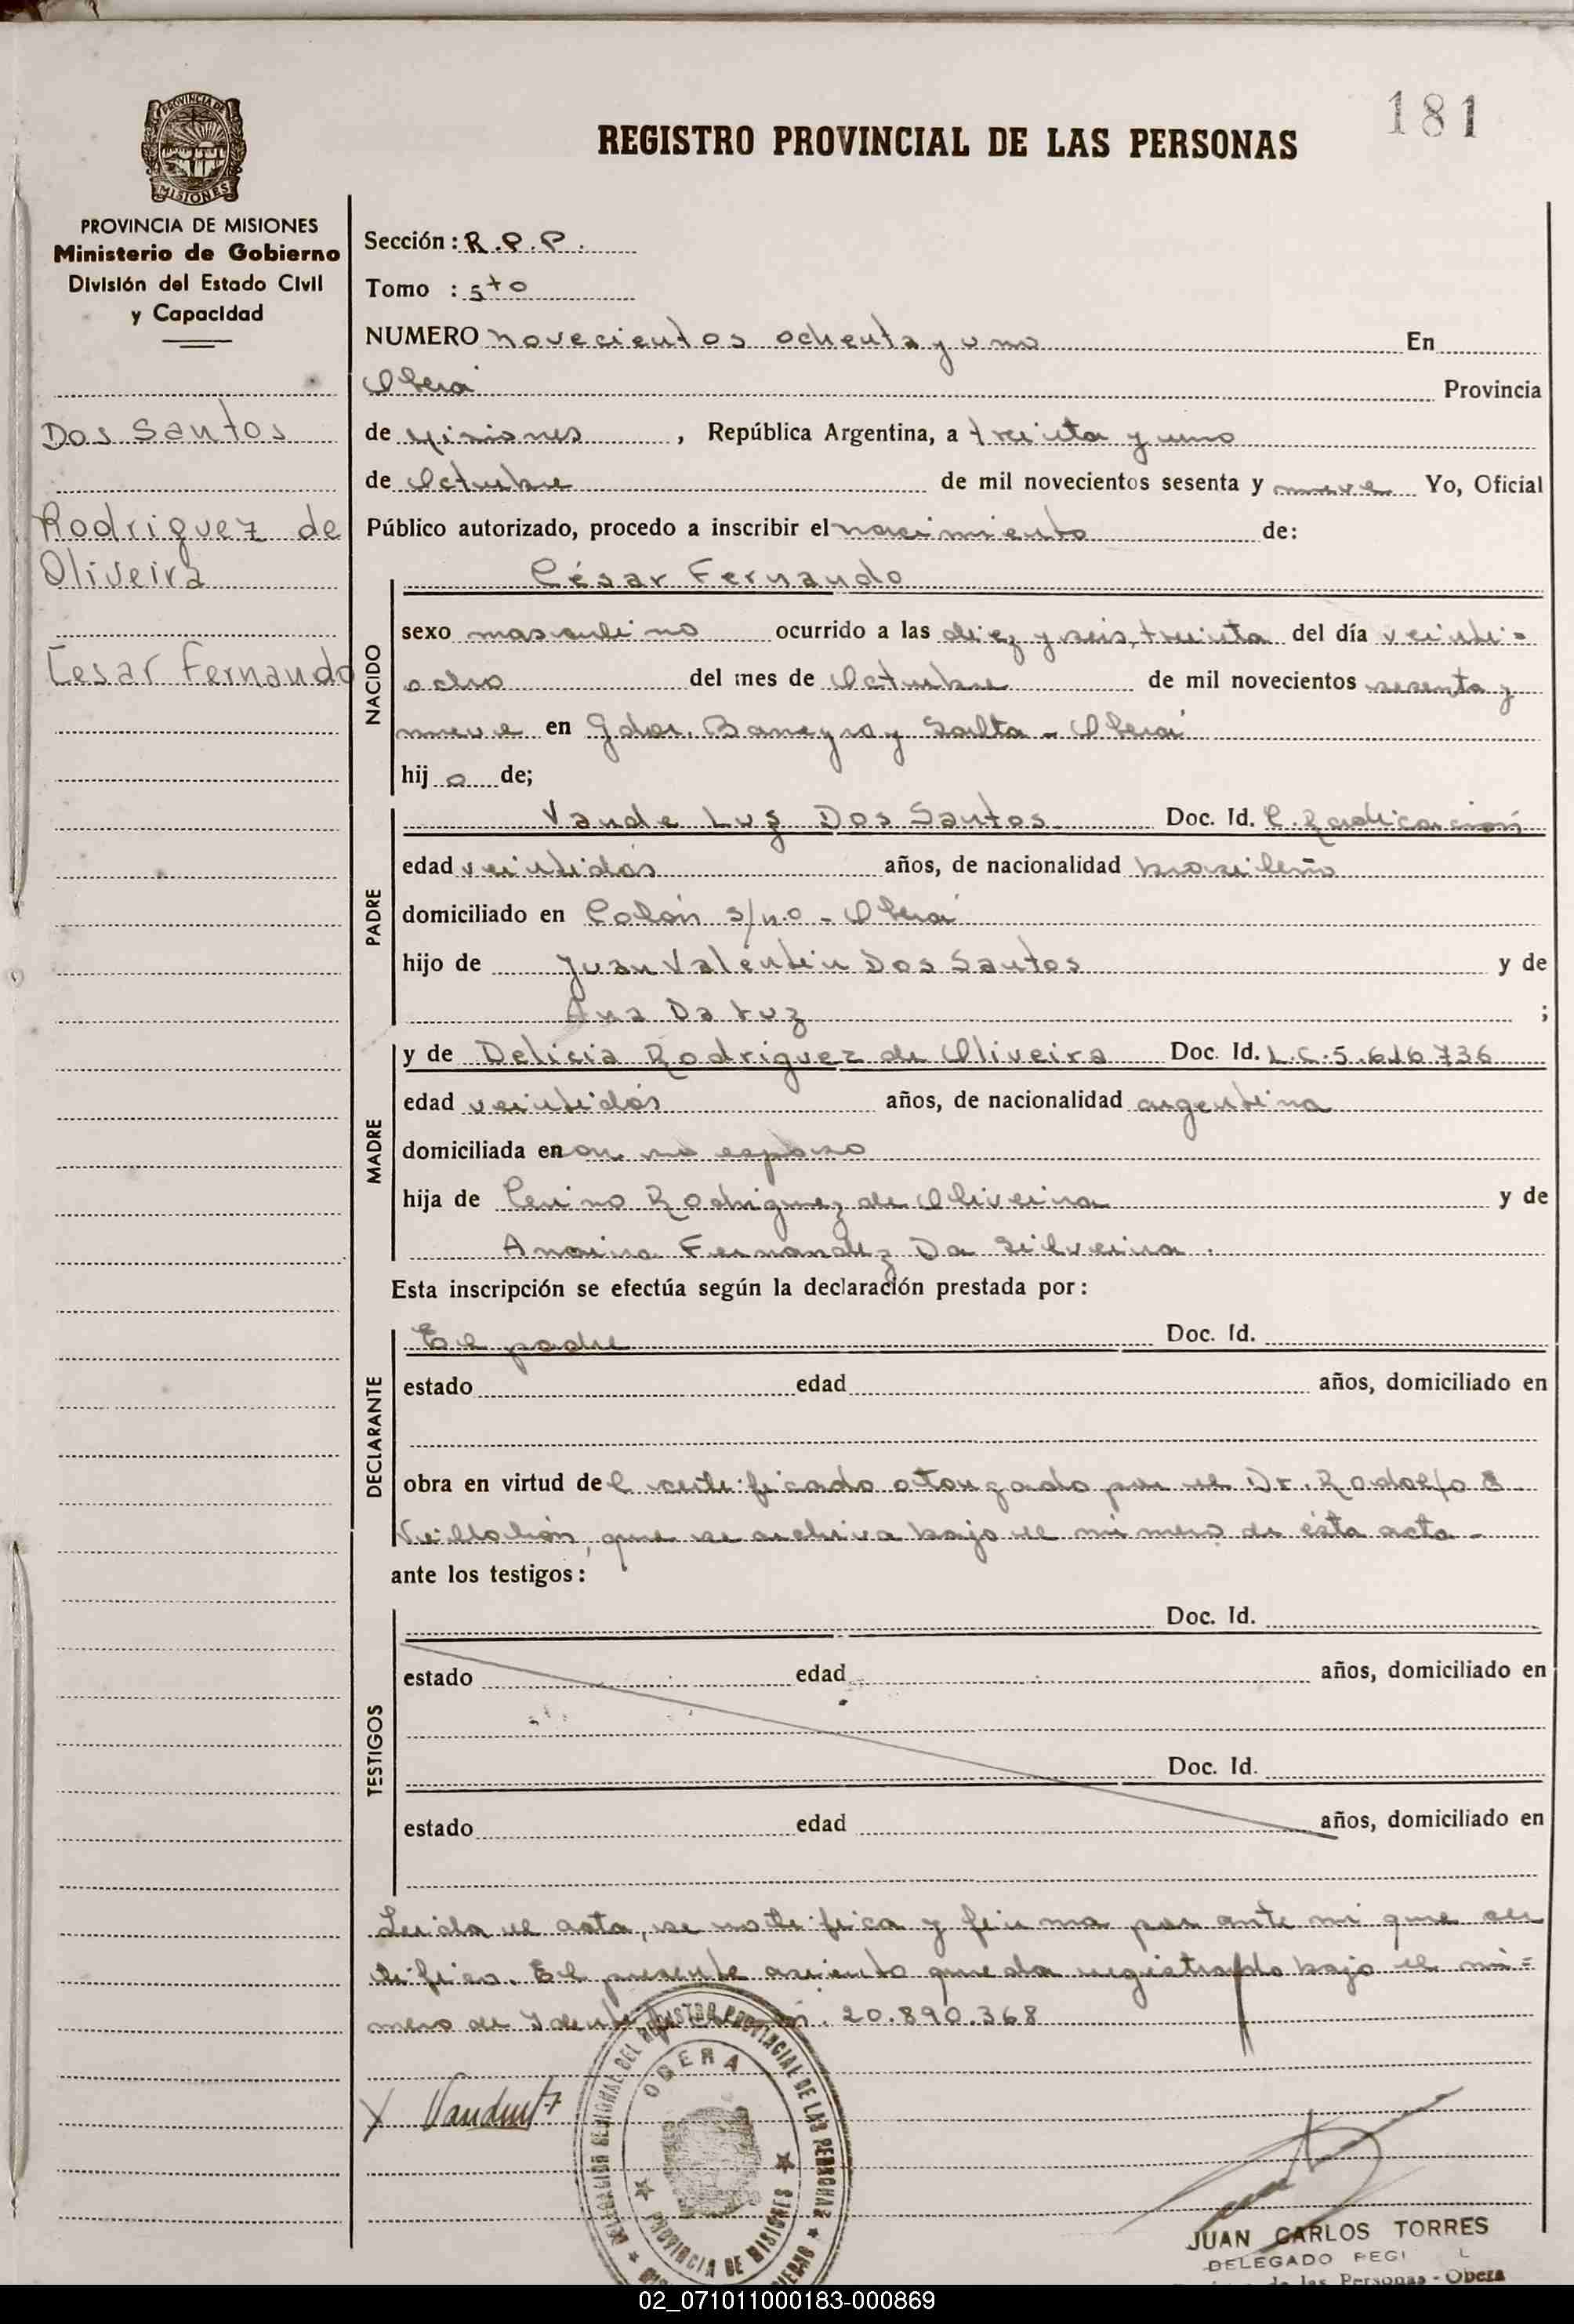 181
REGISTRO PROVINCIAL DE LAS PERSONAS
PROVINCIA DE MISIONES
Ministerio de Gobierno
División del Estado Civil
y Capacidad
Dos Santos
Rodriguez de
Oliveira
Cesar Fernando
Sección : R.P.P.
Tomo : 5to
NUMERO novecientos ochenta y uno En
Oberá Provincia
de Misiones , República Argentina, a treinta y uno
de Octubre de mil novecientos sesenta y nueve Yo, Oficial
Público autorizado, procedo a inscribir el nacimiento de:
NACIDO
César Fernando
sexo masculino ocurrido a las diez y seis, treinta del día veinti=
ocho del mes de Octubre de mil novecientos sesenta y
nueve en Gdor. Barreyro y Salta - Oberá
hij o de;
PADRE
Vande Luz Dos Santos Doc. Id. C. Radicación
edad veintidós años, de nacionalidad brasileño
domiciliado en Colón s/n.o - Oberá
hijo de Juan Valentin Dos Santos y de
Ana Da Luz ;
MADRE
y de Delicia Rodriguez de Oliveira Doc. Id. L.C. 5.616.736
edad veintidós años, de nacionalidad argentina
domiciliada en su esposo
hija de Rodriguez de Oliveira y de
Fernandez Da Silveira .
Esta inscripción se efectúa según la declaración prestada por:
DECLARANTE
El padre Doc. Id.
estado edad años, domiciliado en
obra en virtud del certificado otorgado por el Dr. Rodolfo
que se archiva bajo el número de ésta acta -
ante los testigos:
TESTIGOS
Doc. Id.
estado edad años, domiciliado en
Doc. Id.
estado edad años, domiciliado en
Leida el acta, se notifica y firma por ante mi que cer
tifico. El presente asiento queda registrado bajo el nú=
mero de Identificación: 20.890.368
DELEGACION REGIONAL DEL REGISTRO PROVINCIAL DE LAS PERSONAS
OBERA
PROVINCIA DE MISIONES
JUAN CARLOS TORRES
DELEGADO REGI L
de las Personas - Oberá
02_071011000183-000869